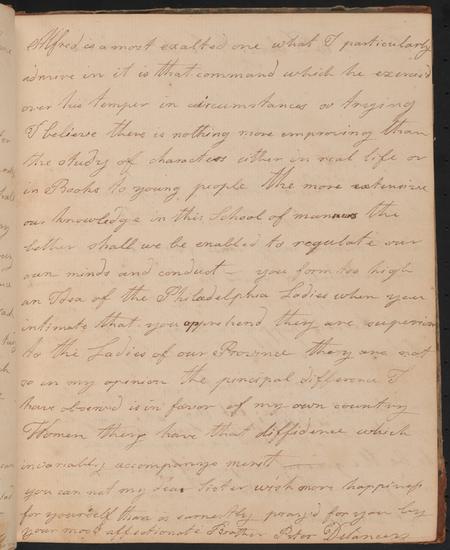 Alfred is a most exalted one what I particularly
admire in it is that command which he exercis'd
over his temper in circumstances so trying
I believe there is nothing more improving than
the study of characters either in real life or
in Books to young people the more extensive
our knowledge in this School of manners the
better shall we be enabled to regulate our
own minds and conduct — you form too high
an Idea of the Philadelphia Ladies when you
intimate that you apprehend they are superior
to the Ladies of our Province they are not
so in my opinion the principal difference I
have observed is in favor of my own country
Women they have that diffidence which
invariably accompanys merit —
you can not my dear Sister wish more happiness
for yourself than is earnestly pray'd for you by
your most affectionate Brother Peter Delancey